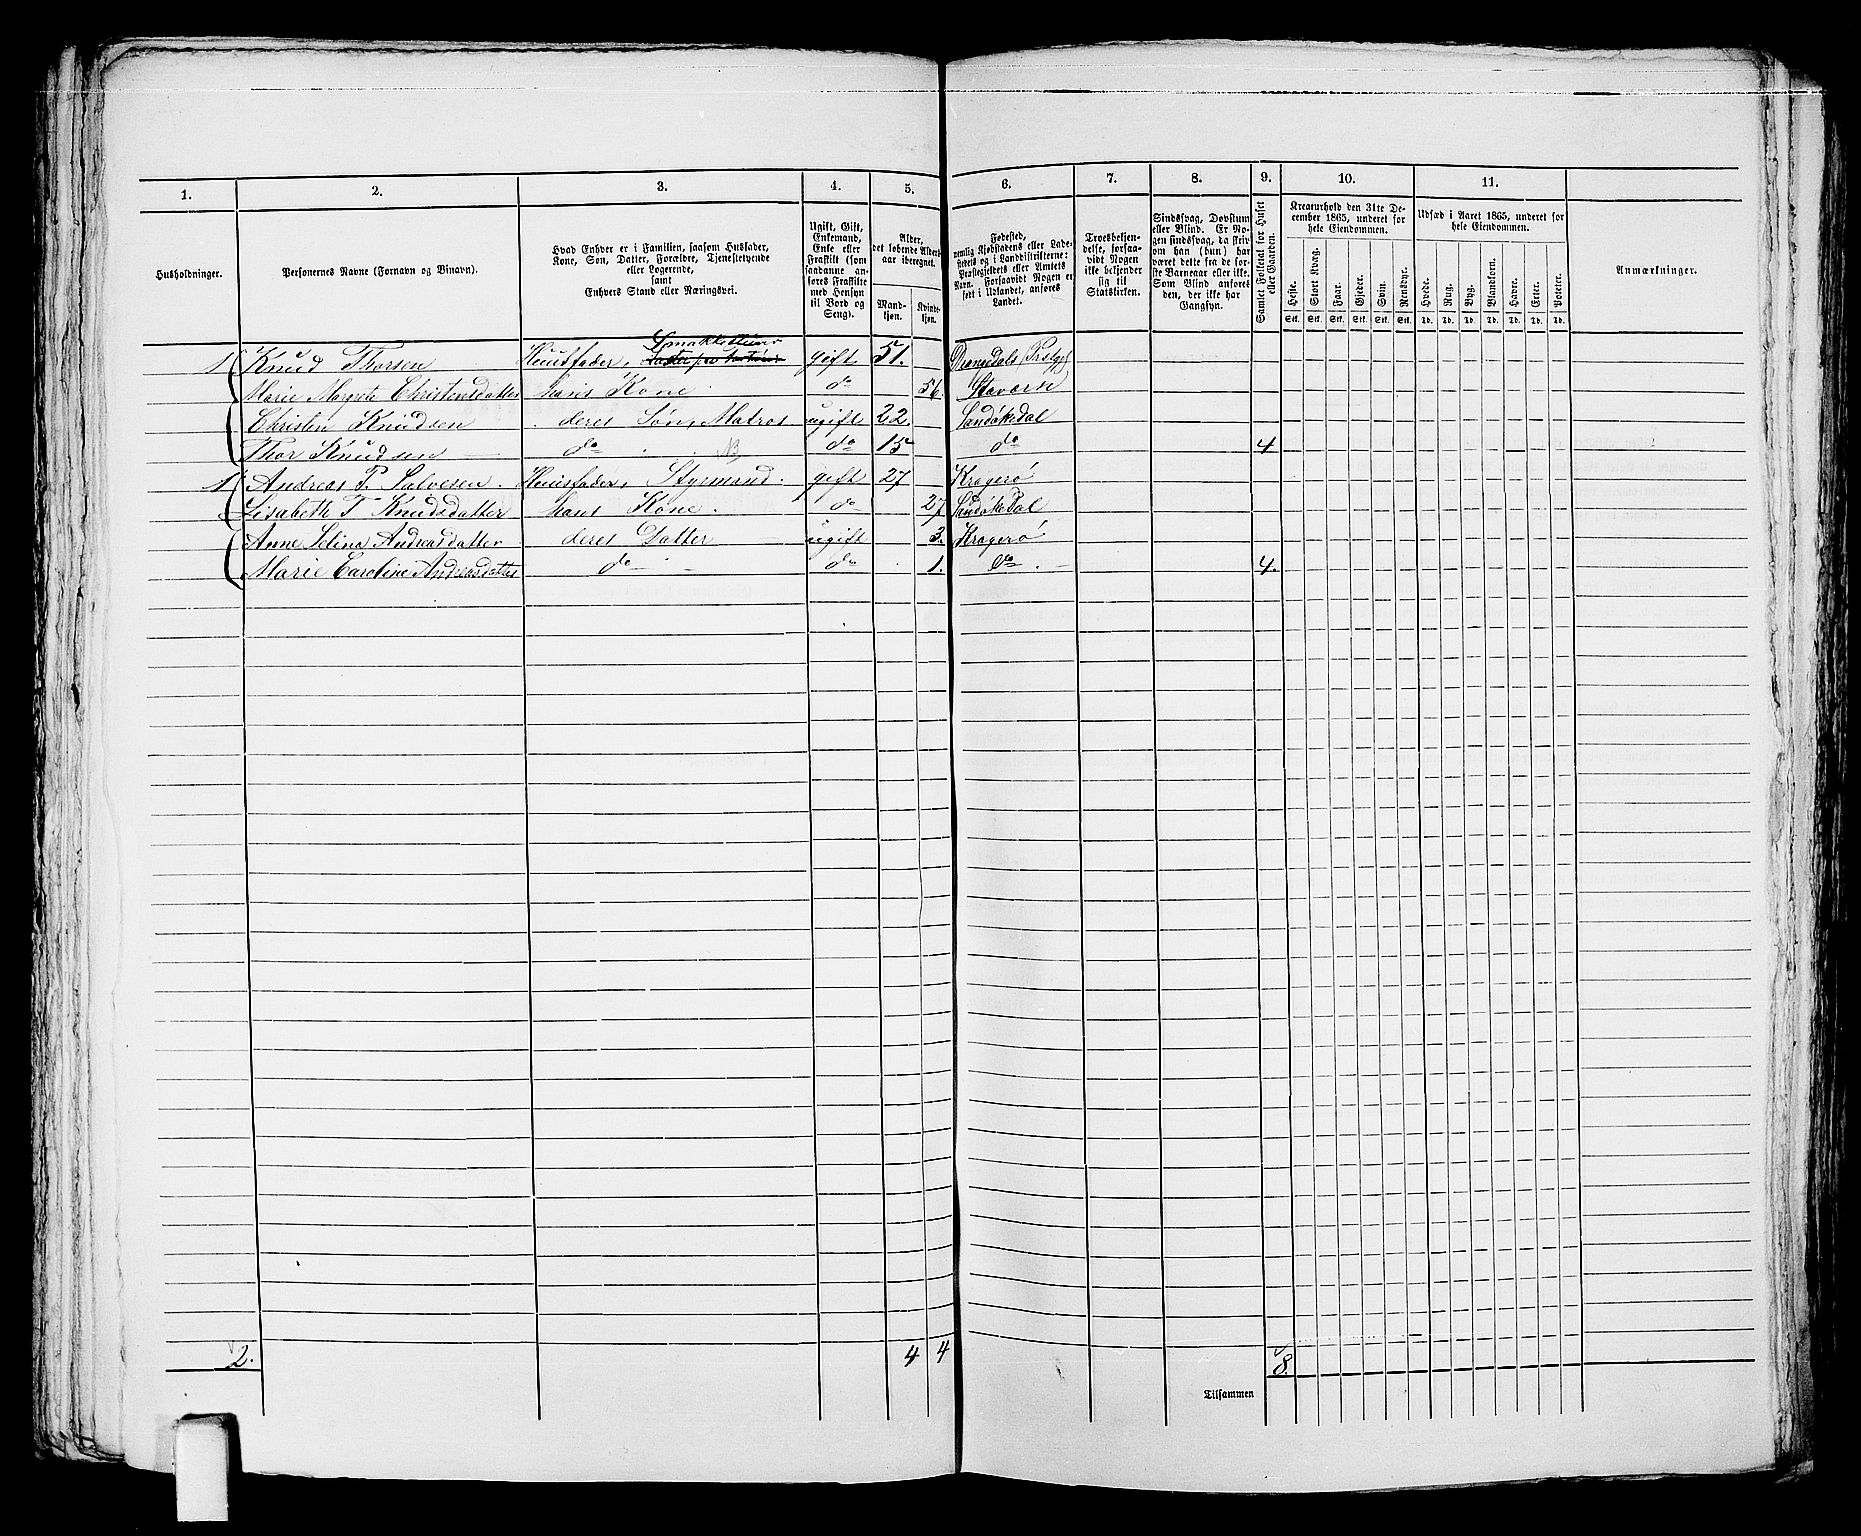 1. 2. 3. 4. 5. 6. 7. 8. 9. 10. 11.
Husholdninger.
Personernes Navne (Fornavn og Binavn).
Hvad Enhver er i Familien, saasom Husfader,
Kone, Søn, Datter, Forældre, Tjenestetyende
eller Logerende,
samt
Enhvers Stand eller Næringsvei.
Ugift, Gift,
Enkemand,
Enke eller
Fraskilt (som
saadanne an-
føres Fraskilte
med Hensyn
til Bord og
Seng).
Alder,
det løbende Alders-
aar iberegnet.
Mand-
kjøn.
Kvinde-
kjøn.
Fødested,
nemlig Kjøbstadens eller Lade-
stedets og i Landdistrikterne:
Præstegjeldets eller Amtets
Navn. Forsaavidt Nogen er
født i Udlandet, anføres
Landet.
Troesbekjen-
delse, forsaa-
vidt Nogen
ikke bekjender
sig til
Statskirken.
Sindssvag, Døvstum
eller Blind. Er No-
gen sindssvag, da skriv
om han (hun) har
været dette fra de før-
ste Barneaar eller ikke.
Som Blind anføres
den, der ikke har
Gangsyn.
Samlet Folketal for Huset
eller Gaarden.
Kreaturhold den 31te De-
cember 1865, underet for
hele Eiendommen.
Heste. Stort Kvæg. Faar. Gjeder. Svin. Rensdyr.
Stk. Stk. Stk. Stk. Stk. Stk.
Udsæd i Aaret 1865, underet for
hele Eiendommen.
Hvede. Rug. Byg. Blandkorn. Havre. Erter. Poteter.
Td. Td. Td. Td. Td. Td. Td.
Anmærkninger.
1 Knud Thorsen Huusfader, gift 51. Drangedals Præstgj
Marie Margrete Christensdatter hans Kone do 56. Staværn
Christen Knudsen deres Søn, Matros ugift 22. Sandøkedal
Thor Knudsen do do 15 do 4
1 Andreas P. Salvesen. Huusfader, Styrmand. gift 27 Kragerø
Lisabeth T Knudsdatter hans Kone. do 27 Sandøkedal
Anne Selina Andreasdatter deres Datter ugift 3. Kragerø
Marie Caroline Andreasdatter do do 1. do 4.
2. 4 4 8.
Tilsammen